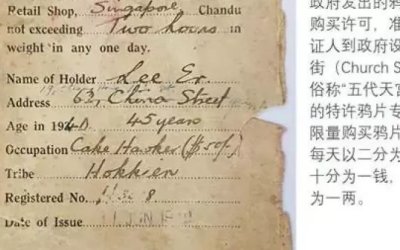 Retail Shop, Singapore, Chandu
not exceeding Two hoons in
weight in any one day.
Name of Holder Lee Er
Address 63, China Street
Age in 1940 45 years
Occupation Cake Hawker ($50/-)
Tribe Hokkien
Registered No.
Date of Issue
政府发出的
购买许可，准
证人到政府设
街（Church S
俗称“五代天宫
的特许鸦片专
限量购买鸦片
每天以二分为
十分为一钱，
为一两。